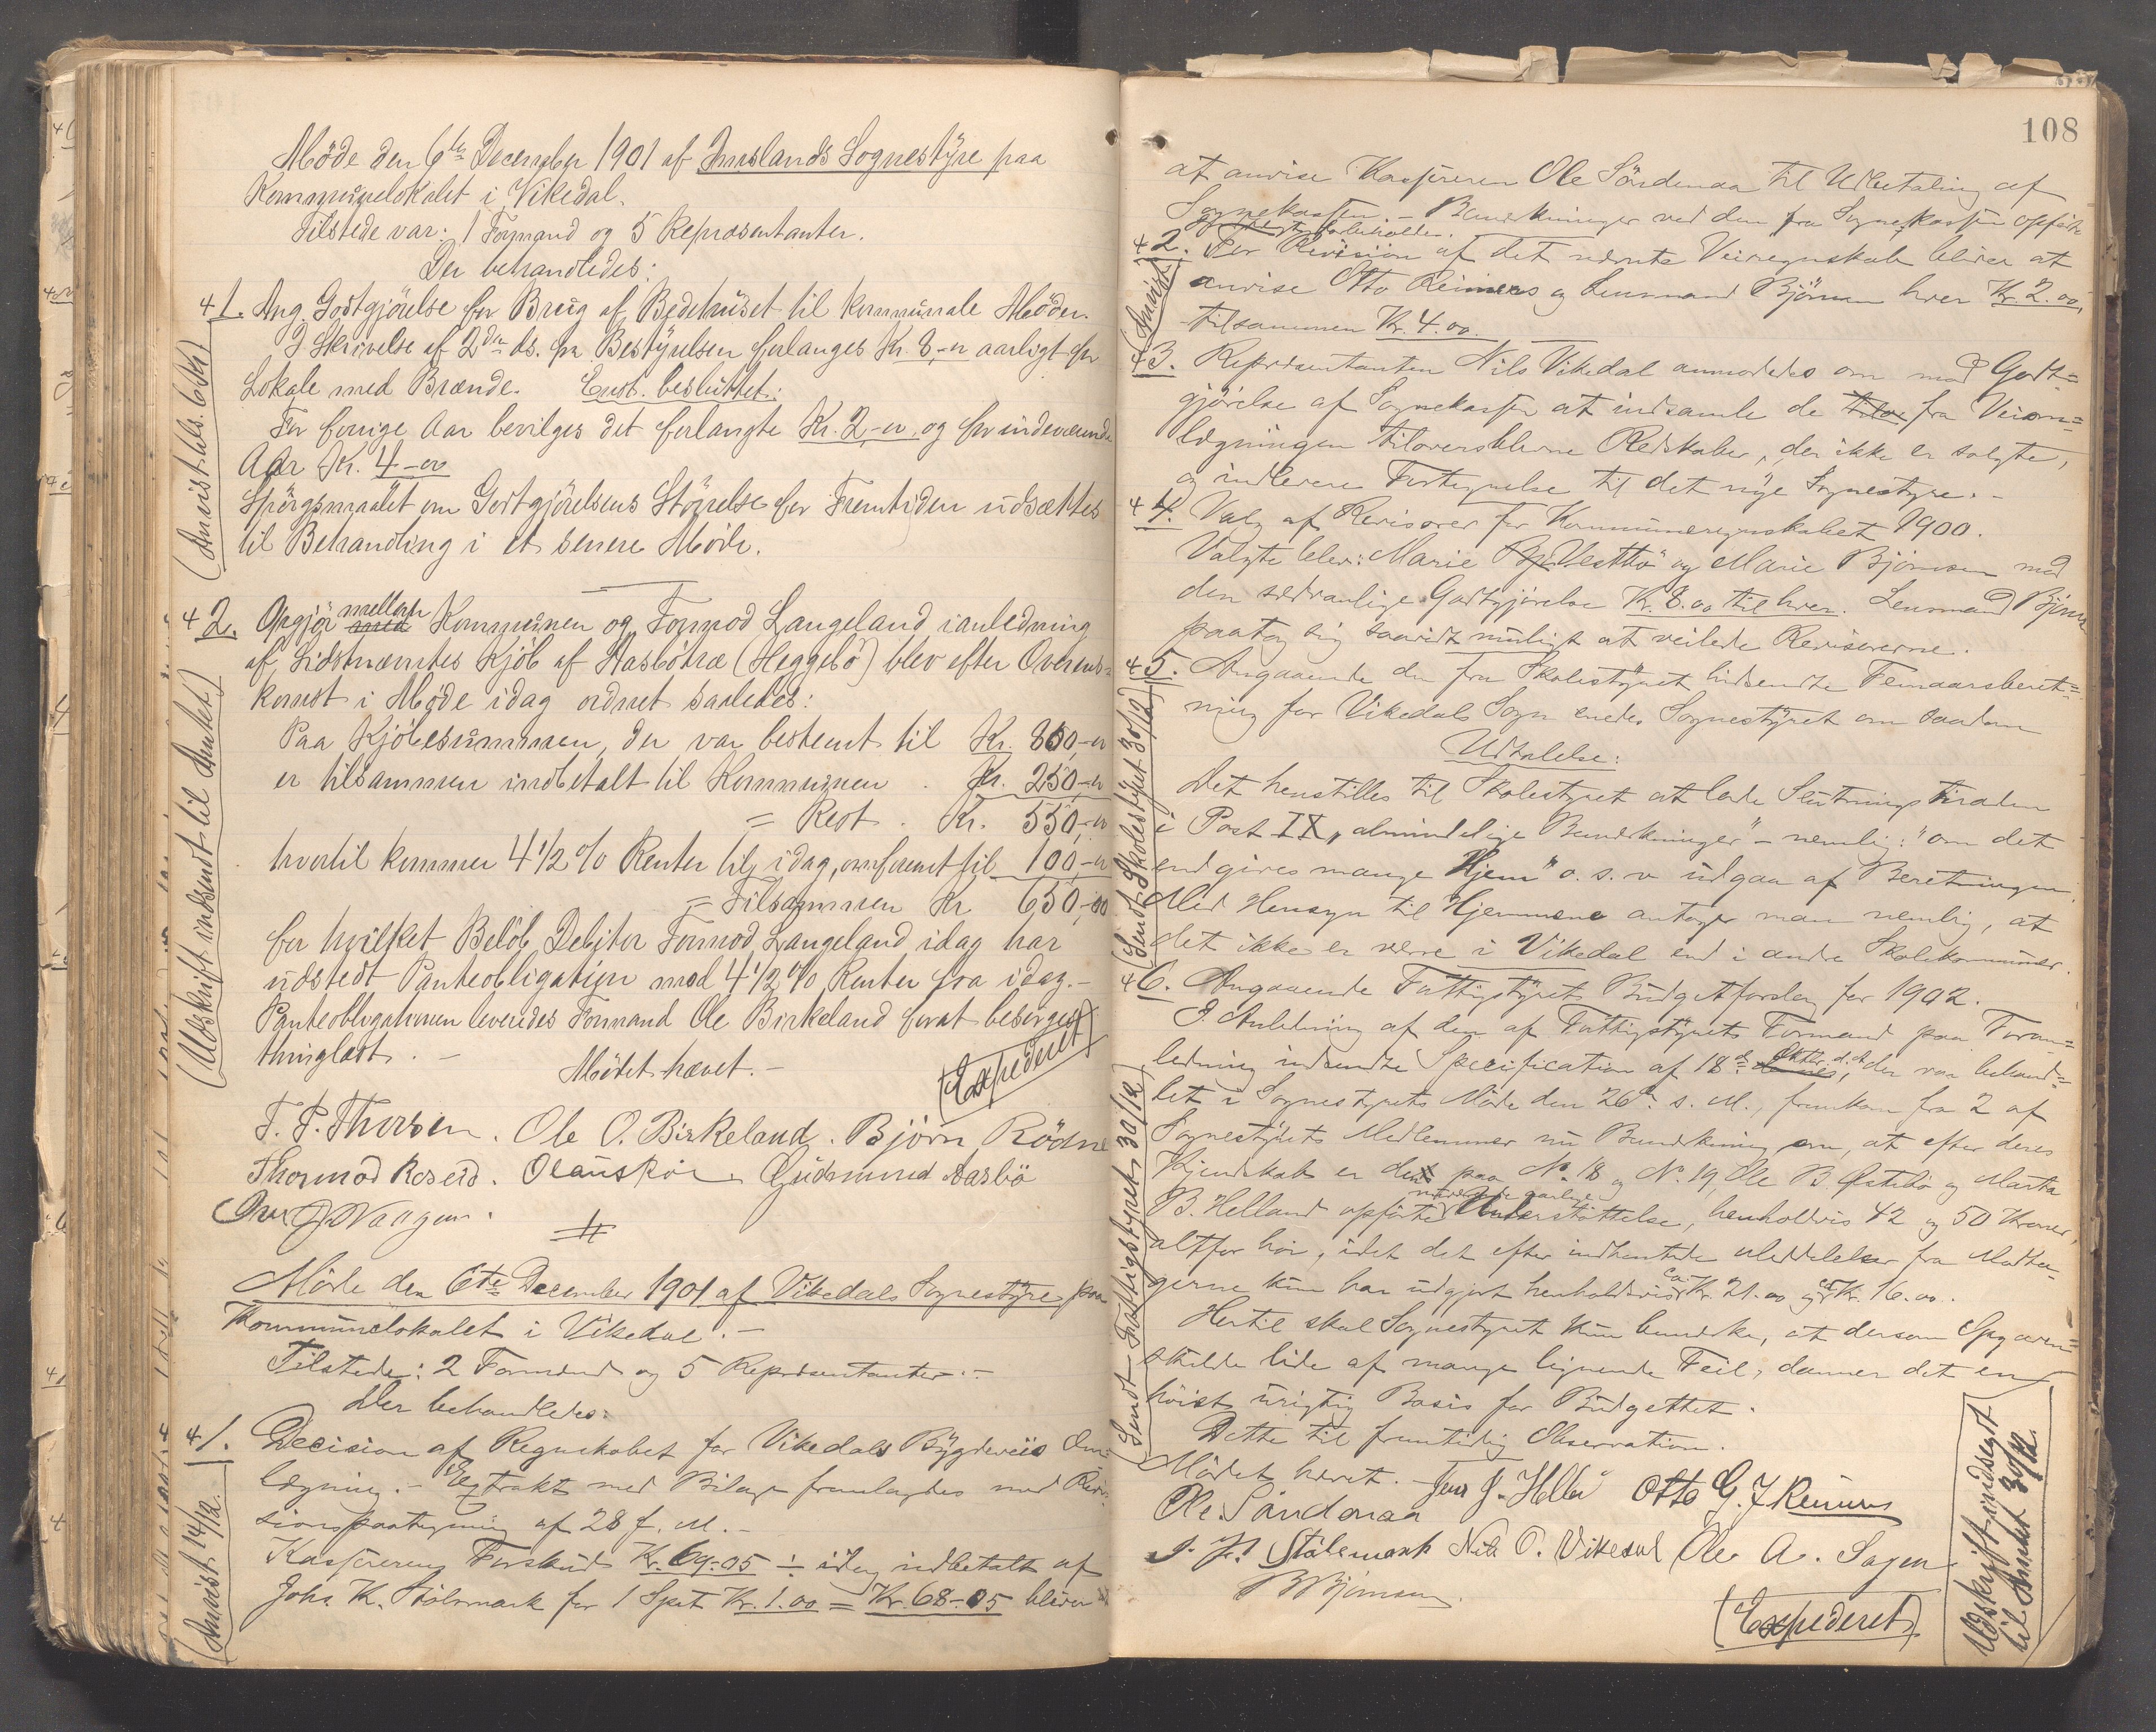 Møde den 6te December 1901 af Imslands Sognestÿre paa
Kommunelokalet i Vikedal.
Tilstede var: 1 Formand og 5 Repræsentanter.
Der behandledes:
1. Ang. Godtgjörelse for Brug af Bedehuset til kommunale Möder.
I Skrivelse af 2den ds. fra Bestyrelsen forlanges Kr. 8,- aarligt for
Lokale med Brænde. Enst. besluttet:
For forrige Aar bevilges det forlangte Kr. 2,- og for indeværende
Aar Kr. 4-
Spörgsmaalet om Godtgjörelsens Störrelse for Fremtiden udsættes
til Behandling i et senere Möde.
(Anvist hds. 6 Kr)
2. Opgjör med mellem Kommunen og Tormod Langeland i anledning
af Sidstnævntes Kjöb af Aasbötræ (Heggebö) blev efter Overens-
komst i Möde idag ordnet saaledes:
Paa Kjöbesummen, der var bestemt til Kr. 800,-
er tilsammen indbetalt til Kommunen . Kr. 250,-
= Rest . Kr. 550,-
hvortil kommer 4 1/2 % Renter til idag, omforenet til 100,-
= Tilsammen Kr 650,00
for hvilket Belöb Debitor Tormod Langeland idag har
udstedt Panteobligation med 4 1/2 % Renter fra idag.-
Panteobligationen leveredes Formand Ole Birkeland forat besörges
thinglæst. -
Mödet hævet. -
(Expederet)
(Udskrift indsendt til Amtet)
T. P. Thorsen. Ole O. Birkeland. Björn Rödne
Thormod Roseid. Gudmund Aasbö
Vaagen.
Möde den 6te December 1901 af Vikedals Sognestyre paa
Kommunelokalet i Vikedal. -
Tilstede: 2 Formænd og 5 Repræsentanter. -
Der behandledes:
1. Decision af Regnskabet for Vikedals Bÿgdeveis Om-
lægning. - Extrakt med Bilage fremlagdes med Revi-
sionspaategning af 28 f. M. -
Kassererens Forskud Kr. 69-05 ÷ idag indbetalt af
Johs. K. Stölsmark for 1 Spet Kr. 1.00 = Kr. 68-05 bliver
(Anvist 14/12.)
108
at anvise Kassereren Ole Söndenaa til Udbetaling af
Sognekassen. - Bemærkninger ved den fra Sognekassen opförte
forbeholdes.
2. For Revision af det nævnte Veiregnskab bliver at
anvise Otto Reimers og Lensmand Björnsen hver Kr. 2.00,
tilsammen Kr. 4.00.
(Anvist)
3. Repræsentanten Nils Vikedal anmodedes om mod Godt-
gjörelse af Sognekassen at indsamle de fra Veiom-
lægningen tiloversblevne Redskaber, der ikke er solgte,
og indlevere Fortegnelse til det nye Sognestyre. -
4. Valg af Revisorer for Kommuneregnskabet 1900.
Valgte blev: Marie Vestbö og Marie Björnsen med
den sædvanlige Godtgjörelse Kr. 8.00 til hver. Lensmand Björnsen
paatog sig saavidt muligt at veilede Revisorerne.
5. Angaaende den fra Skolestÿret hidsendte Femaarsberet-
ning for Vikedals Sogn enedes Sognestyret om saadan
Udtalelse:
Det henstilles til Skolestyret at lade Slutningstiraden
i Post IX „almindelige Bemærkninger" - nemlig: "om det
end gives mange Hjem" o. s. v udgaa af Beretningen.
Med Hensyn til Hjemmene antager man nemlig, at
det ikke er værre i Vikedal end i andre Skolekommuner.
(Sendt Skolestyret 30/12)
6. Angaaende Fattigstyrets Budgetforslag for 1902.
I Anledning af den af Fattigstyrets Formand paa Foran-
ledning indsendte Specification af 18de Oktbr. d. A., der var behand-
let i Sognestyrets Möde den 26de s. M., fremkom fra 2 af
Sognestyrets Medlemmer nu Bemærkning om, at efter deres
Kjendskab er den paa No. 18 og No. 19, Ole B. Östebö og Marta
B. Helland opförte nuværende aarlige Understöttelse, henholdsvis 42 og 50 Kroner,
altfor höi, idet det efter indhentede Meddelelser fra Modta-
gerne kun har udgjort henholdsvis ca. Kr. 21.00 og ca. Kr. 16.00.
Hertil skal Sognestyret kun bemærke, at dersom Opgaven
skulde lide af mange lignende Feil, danner det en
höist urigtig Basis for Budgettet.
Dette til fremtidig Observation.
(Sendt Fattigstyret 30/12)
Mödet hævet. - Jens J. Hellö Otto G. J Reimers
Ole Söndenaa
J. K. Stölsmark Nils O. Vikedal Ole A. Sagen
B Björnsen.
(Expederet)
Udskrift indsendt
til Amtet 30/12.